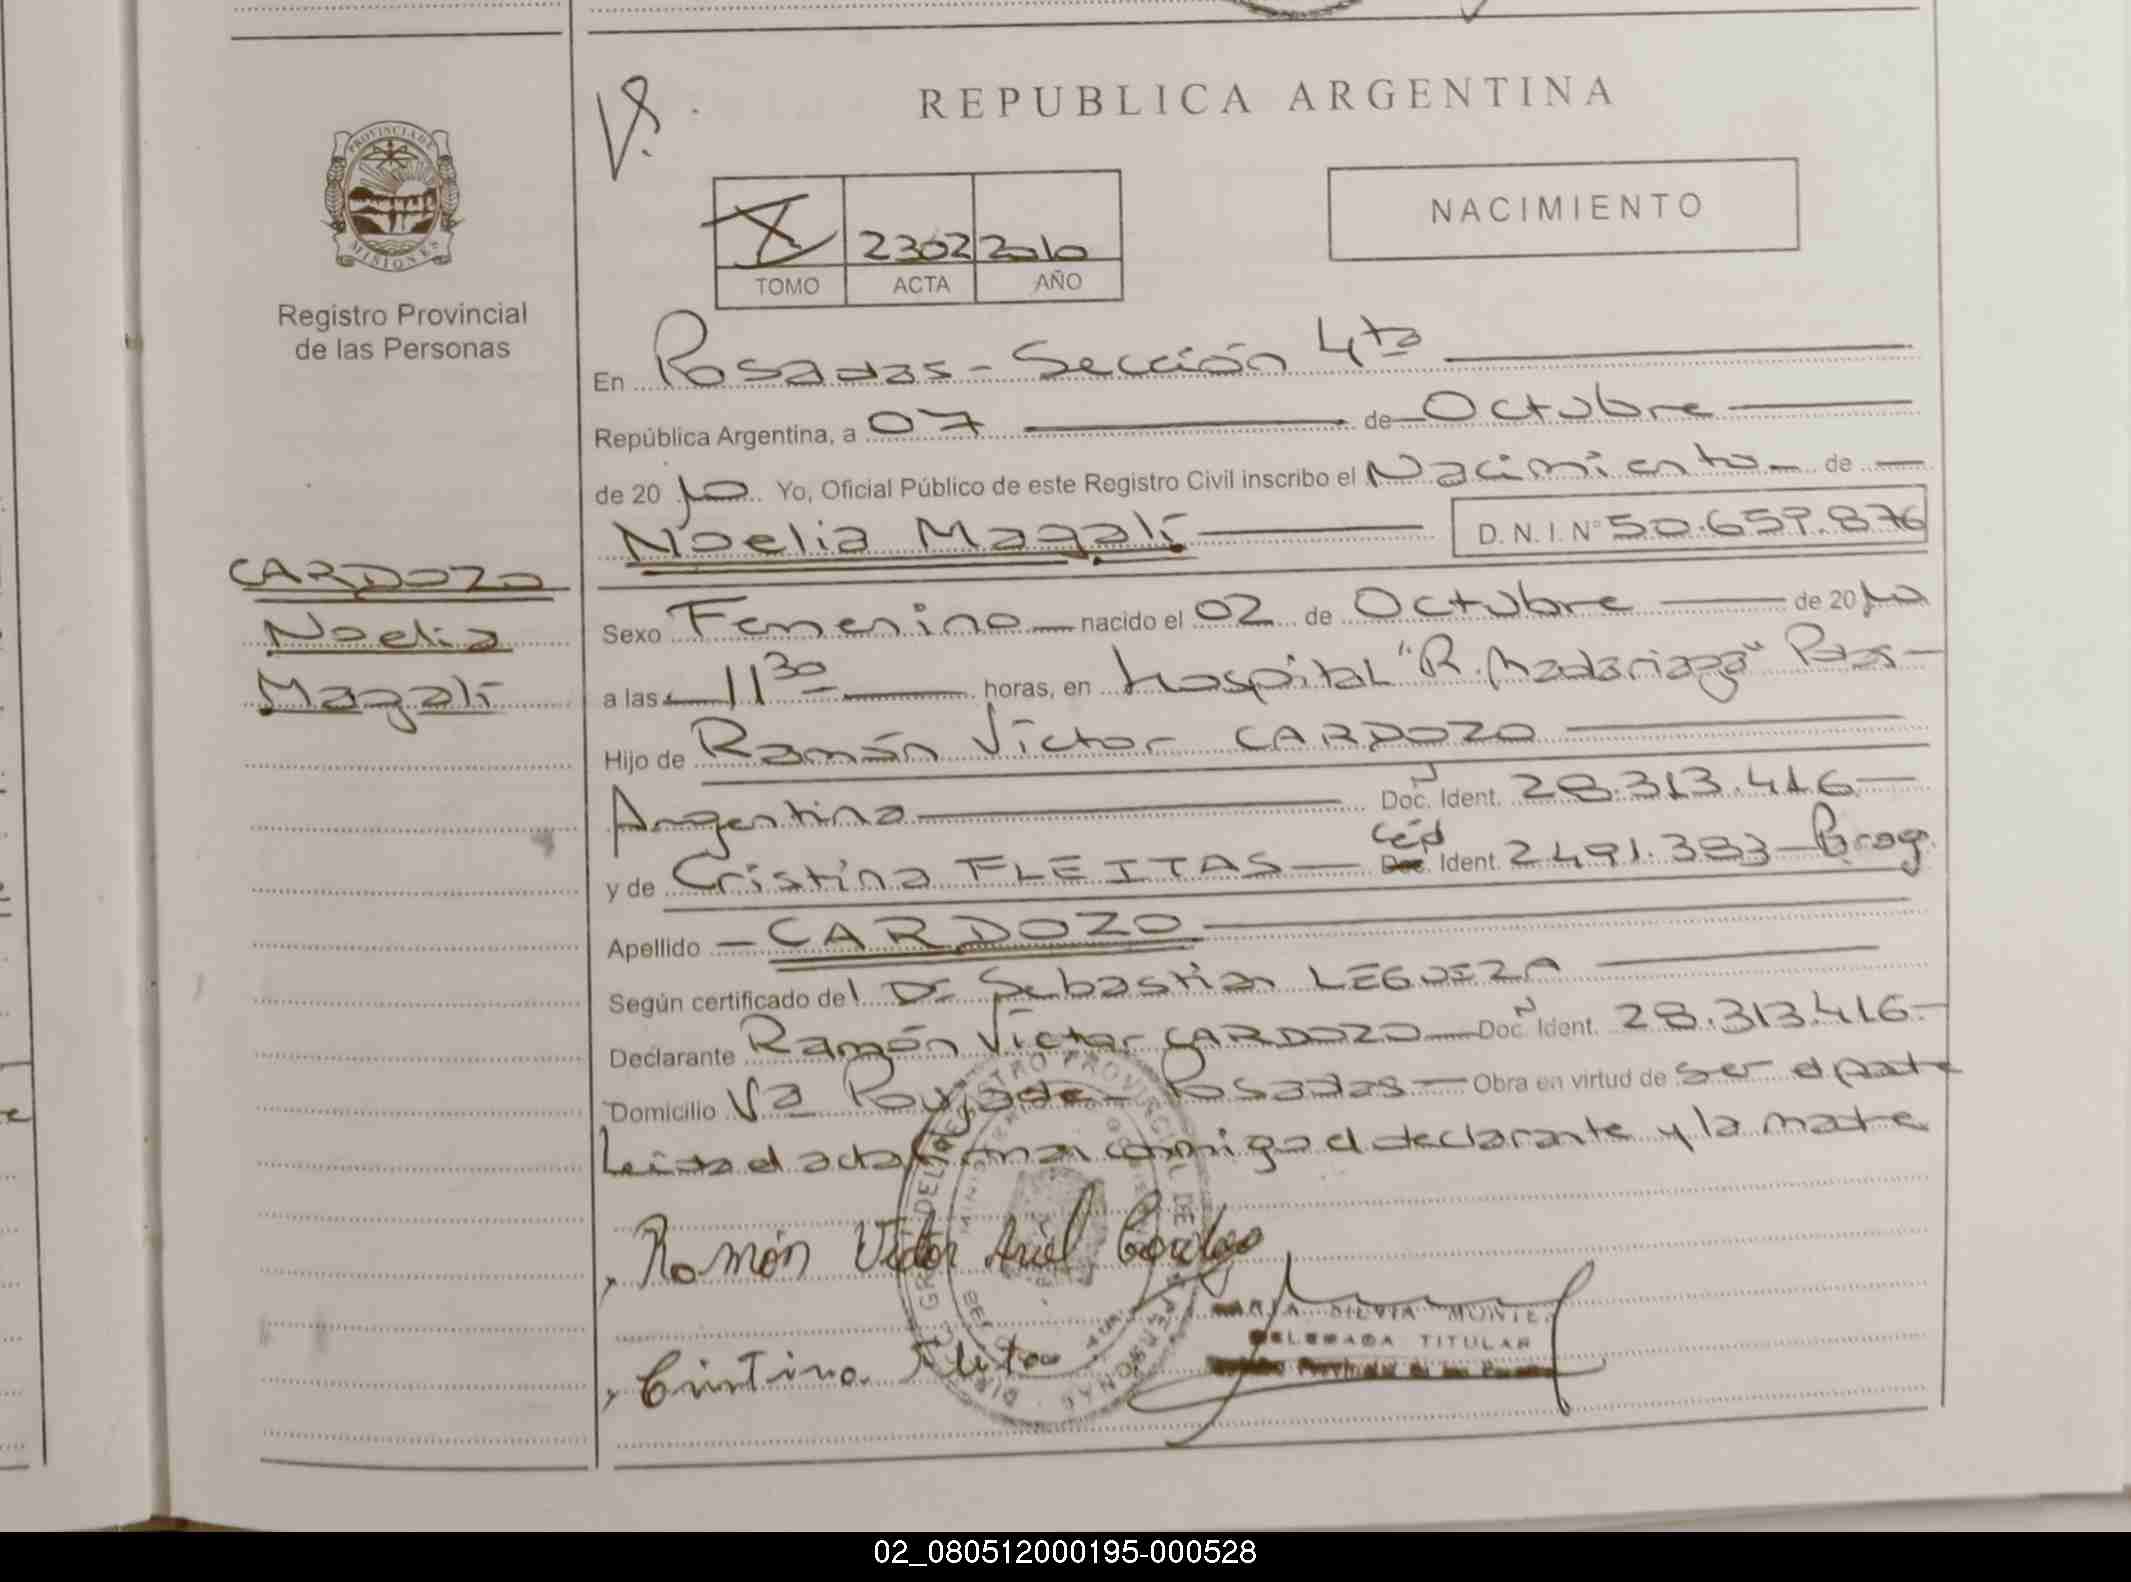 REPUBLICA ARGENTINA
PROVINCIA DE
MISIONES
Registro Provincial
de las Personas
X 2302 2010
TOMO ACTA AÑO
NACIMIENTO
En Posadas - Sección 4ta
República Argentina, a 07 de Octubre
de 20 10 Yo, Oficial Público de este Registro Civil inscribo el Nacimiento de
Noelia Magalí D.N.I. Nº 50.659.876
CARDOZO
Noelia
Magalí
Sexo Femenino nacido el 02 de Octubre de 20 10
a las 11 30 horas, en hospital "R. Madariaga" Pdas
Hijo de Ramón Víctor CARDOZO
Argentina Doc. N Ident. 28.313.416
y de Cristina FLEITAS Céd Ident. 2491.383
Apellido CARDOZO
Según certificado del Dr Sebastian LEGUIZA
Declarante Ramón Víctor CARDOZO Doc. N Ident. 28.313.416
Domicilio Vª Poujade - Posadas Obra en virtud de ser el padre
Leida el acta firman conmigo el declarante y la madre
Ramón Victor Ariel Cardozo
Cristina Fleitas
MARIA SILVIA
DELEGADA TITULAR
02_080512000195-000528